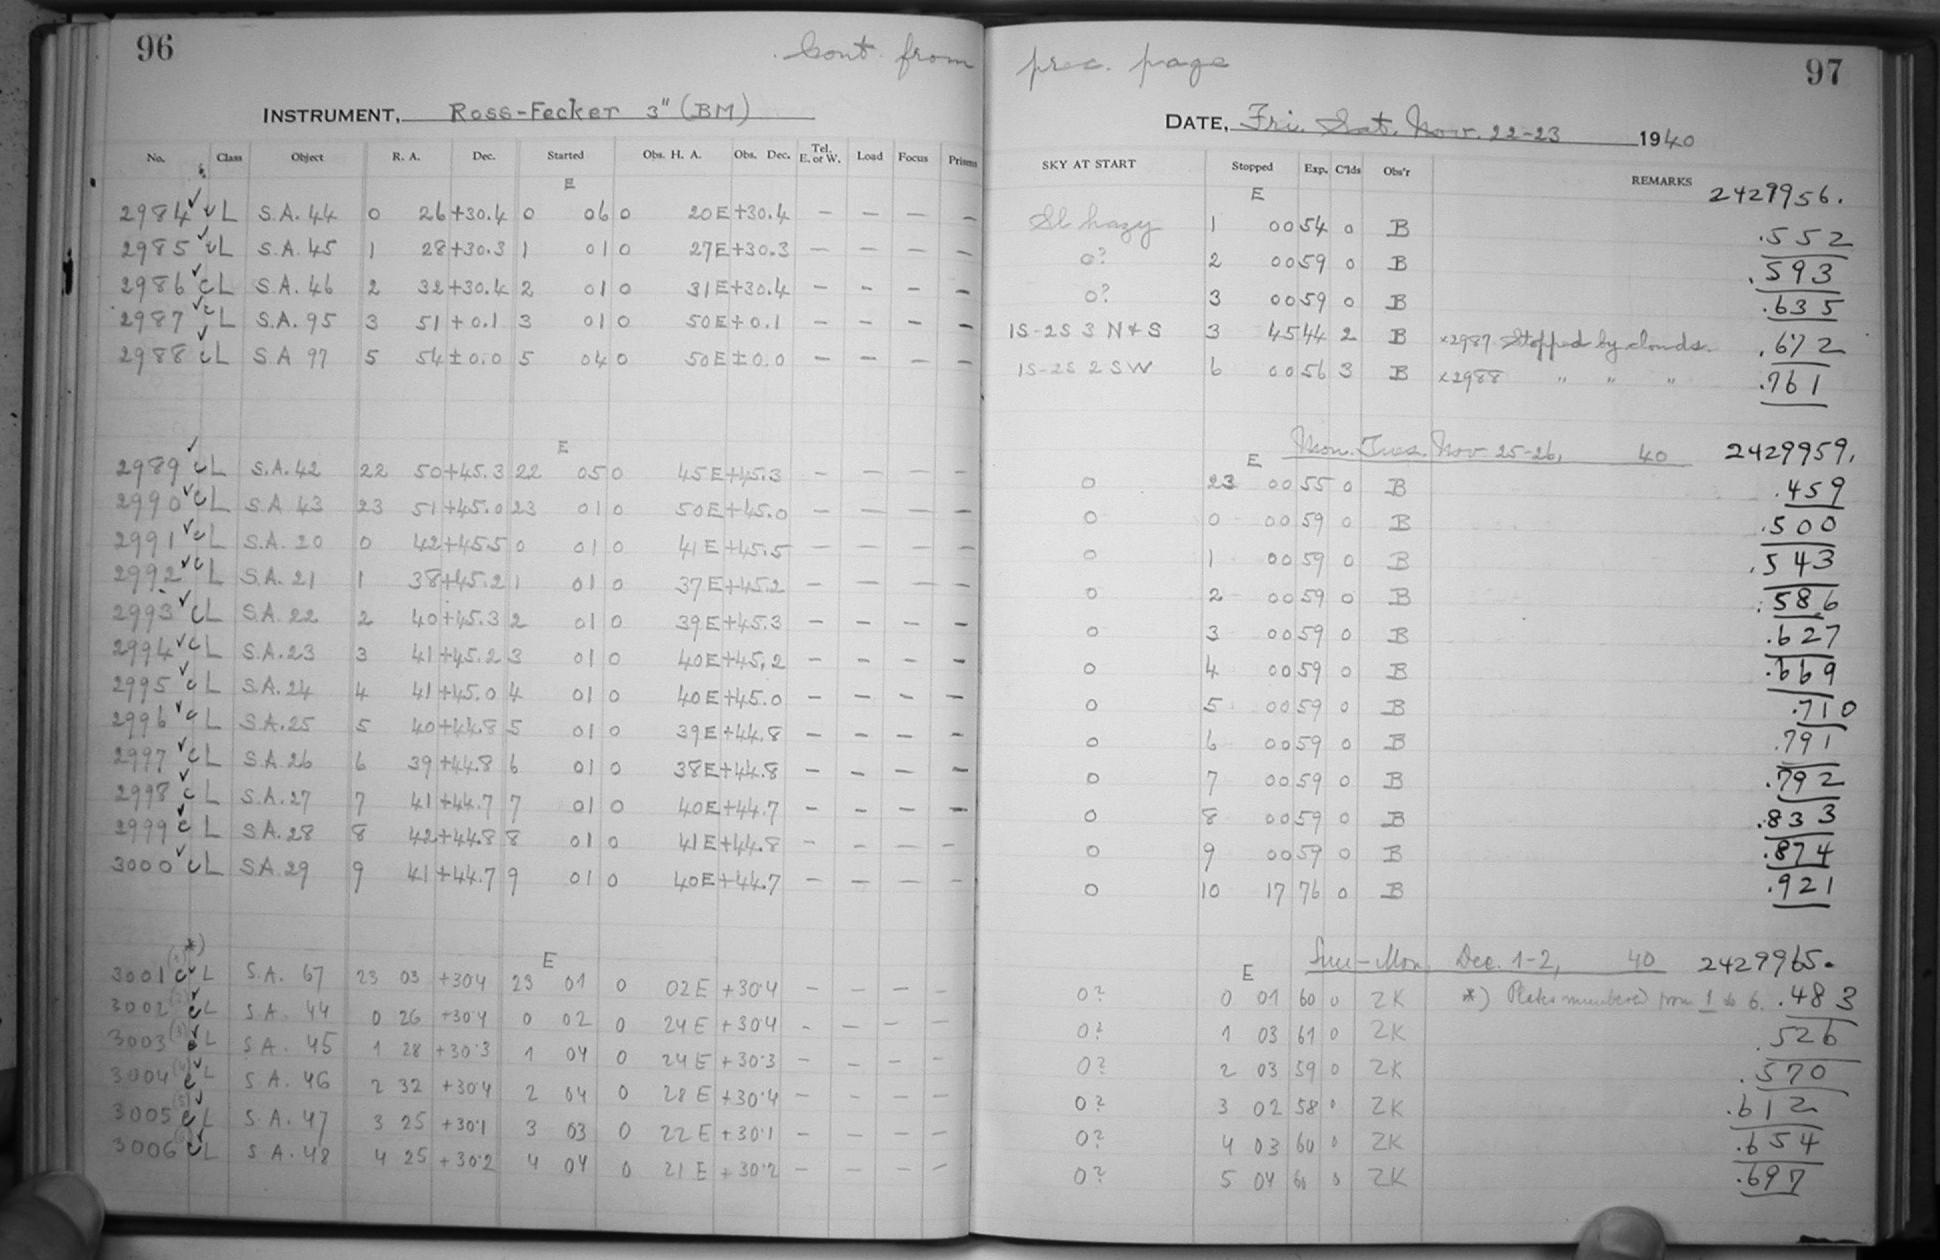 96
Cont. from
INSTRUMENT, Ross-Fecker 3" (BM)
No. Class Object R. A. Dec. Started Obs. H. A. Obs. Dec. Tel. E. or W. Load Focus Prisms
E
2984 ✓ c L S.A. 44 0 26 +30.4 0 06 0 20E +30.4 — — — —
2985 ✓ c L S.A. 45 1 28 +30.3 1 01 0 27E +30.3 — — — —
2986 ✓ c L S.A. 46 2 32 +30.4 2 01 0 31E +30.4 — — — —
2987 ✓ c L S.A. 95 3 51 +0.1 3 01 0 50E +0.1 — — — —
2988 ✓ c L S.A 97 5 54 ±0.0 5 04 0 50E ±0.0 — — — —
E
2989 ✓ c L S.A. 42 22 50 +45.3 22 05 0 45E +45.3 — — — —
2990 ✓ c L S.A 43 23 51 +45.0 23 01 0 50E +45.0 — — — —
2991 ✓ c L S.A. 20 0 42 +45.5 0 01 0 41E +45.5 — — — —
2992 ✓ c L S.A. 21 1 38 +45.2 1 01 0 37E +45.2 — — — —
2993 ✓ c L S.A. 22 2 40 +45.3 2 01 0 39E +45.3 — — — —
2994 ✓ c L S.A. 23 3 41 +45.2 3 01 0 40E +45.2 — — — —
2995 ✓ c L S.A. 24 4 41 +45.0 4 01 0 40E +45.0 — — — —
2996 ✓ c L S.A. 25 5 40 +44.8 5 01 0 39E +44.8 — — — —
2997 ✓ c L S.A 26 6 39 +44.8 6 01 0 38E +44.8 — — — —
2998 ✓ c L S.A. 27 7 41 +44.7 7 01 0 40E +44.7 — — — —
2999 ✓ c L S.A. 28 8 42 +44.8 8 01 0 41E +44.8 — — — —
3000 ✓ c L S.A. 29 9 41 +44.7 9 01 0 40E +44.7 — — — —
*)
E
3001 (1) c ✓ L S.A. 67 23 03 +30.4 23 01 0 02E +30.4 — — — —
3002 (2) c ✓ L S.A. 44 0 26 +30.4 0 02 0 24E +30.4 — — — —
3003 (3) c ✓ L S.A. 45 1 28 +30.3 1 04 0 24E +30.3 — — —
3004 (4) c ✓ L S.A. 46 2 32 +30.4 2 04 0 28E +30.4 — — — —
3005 (5) c ✓ L S.A. 47 3 25 +30.1 3 03 0 22E +30.1 — — — —
3006 c ✓ L S.A. 48 4 25 +30.2 4 04 0 21E +30.2 — — — —
prec. page
97
DATE, Fri. Sat. Nov. 22-23 1940
SKY AT START Stopped Exp. C'lds Obs'r REMARKS
E 2429956.
Sl hazy 1 00 54 0 B .552
0? 2 00 59 0 B .593
0? 3 00 59 0 B .635
1S-2S 3 N+S 3 45 44 2 B ×2987 Stopped by clouds. .672
1S-2S 2 SW 6 00 56 3 B ×2988 " " " .761
E Mon. Tues. Nov 25-26, 40 2429959.
0 23 00 55 0 B .459
0 0 00 59 0 B .500
0 1 00 59 0 B .543
0 2 00 59 0 B .586
0 3 00 59 0 B .627
0 4 00 59 0 B .669
0 5 00 59 0 B .710
0 6 00 59 0 B .791
0 7 00 59 0 B .792
0 8 00 59 0 B .833
0 9 00 59 0 B .874
0 10 17 76 0 B .921
E Sun-Mon, Dec. 1-2, 40 2429965.
0? 0 01 60 0 ZK *) Plates numbered from 1 to 6. .483
0? 1 03 61 0 ZK .526
0? 2 03 59 0 ZK .570
0? 3 02 58 0 ZK .612
0? 4 03 60 0 ZK .654
0? 5 04 60 0 ZK .697